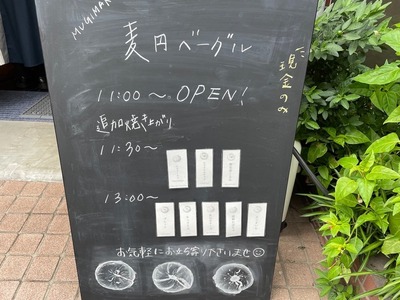 MUGIMARU
麦円ベーグル
現金のみ
11:00〜OPEN!
追加焼き上がり
11:30〜
13:00〜
お気軽にお立ち寄りくださいませ☺